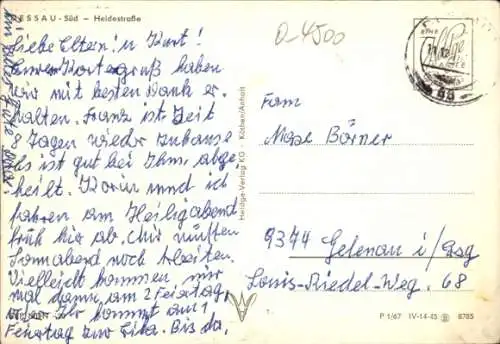 DESSAU - Süd — Heidestraße
Liebe Eltern u Kurt!
Euren Kartengruß haben
wir mit besten Dank er-
halten. Franz ist seit
8 Tagen wieder zuhause
Es ist gut bei Ihm abge-
heilt. Karin und ich
fahren am Heiligabend
früh hir ab. Wir müssen
Sonnabend noch Arbeiten.
Vielleicht kommen wir
mal dann am 2 Feiertag,
oder Ihr kommt am 1
Feiertag zur Bis da.
Heldge-Verlag KG · Köthen/Anhalt
0-4500
Fam.
Max Börner
9374 Gelenau i/Erzg
Louis-Riedel-Weg. 68
P 1/67 IV-14-45 8785